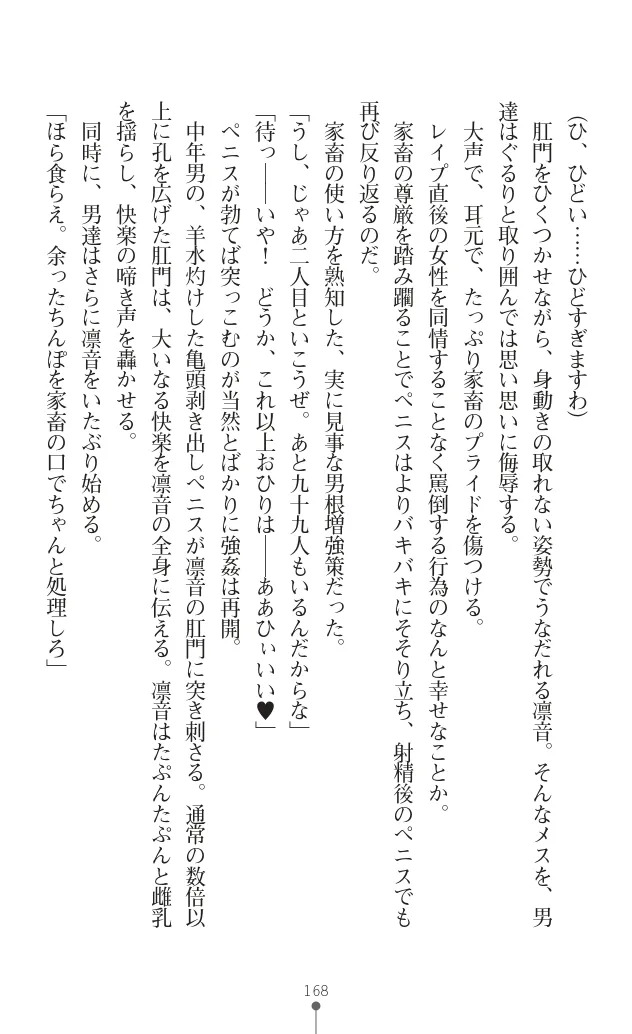 (ひ、ひどい……ひどすぎますわ)
　肛門をひくつかせながら、身動きの取れない姿勢でうなだれる凛音。そんなメスを、男
達はぐるりと取り囲んでは思い思いに侮辱する。
　大声で、耳元で、たっぷり家畜のプライドを傷つける。
　レイプ直後の女性を同情することなく罵倒する行為のなんと幸せなことか。
　家畜の尊厳を踏み躙ることでペニスはよりバキバキにそそり立ち、射精後のペニスでも
再び反り返るのだ。
　家畜の使い方を熟知した、実に見事な男根増強策だった。
「うし、じゃあ二人目といこうぜ。あと九十九人もいるんだからな」
「待っ――いや！　どうか、これ以上おひりは――ああひぃいい♥」
　ペニスが勃てば突っこむのが当然とばかりに強姦は再開。
　中年男の、羊水灼けした亀頭剥き出しペニスが凛音の肛門に突き刺さる。通常の数倍以
上に孔を広げた肛門は、大いなる快楽を凛音の全身に伝える。凛音はたぷんたぷんと雌乳
を揺らし、快楽の啼き声を轟かせる。
　同時に、男達はさらに凛音をいたぶり始める。
「ほら食らえ。余ったちんぽを家畜の口でちゃんと処理しろ」
168